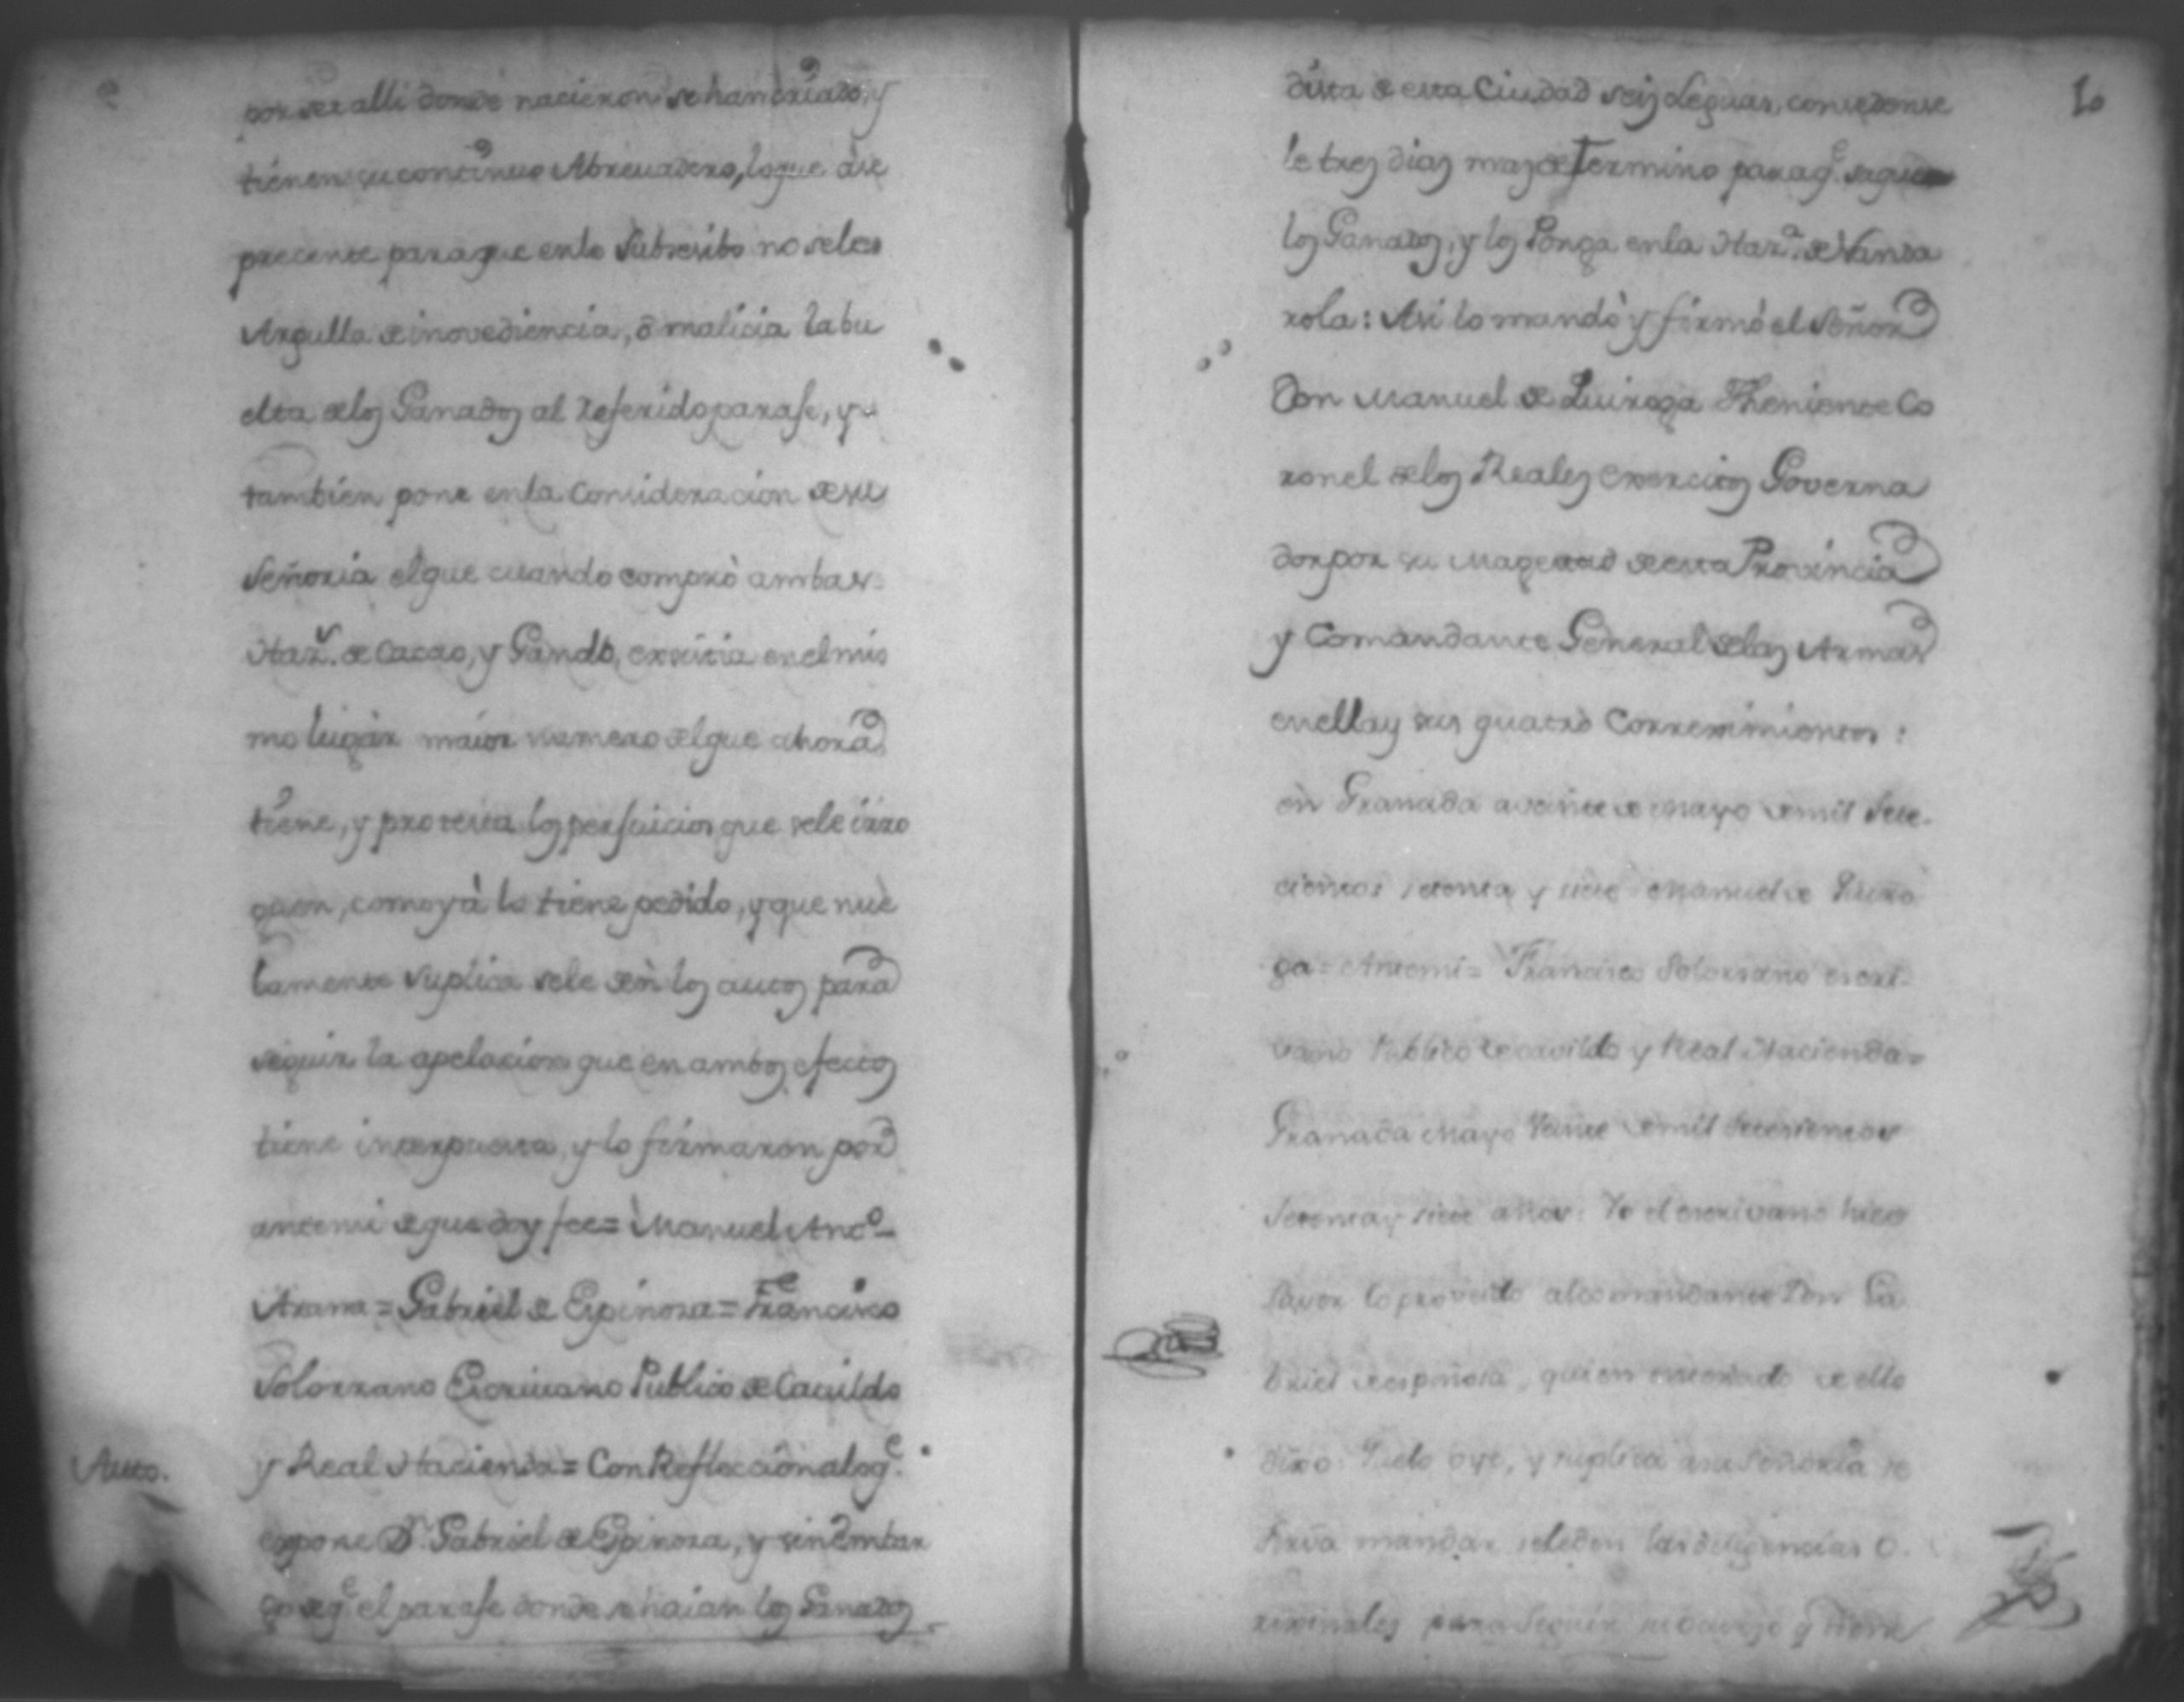 por ser alli donde nacieron se han criado, y
tienen su continuo Abrevadero, lo que àse
precente para que enlo Subsesibo no seles
Argulla de inovediencia, ô malicia labu
elta delos Ganados al referido paraje, y
tambien pone enla Consideracion desu
Señoria elque cuando comprò ambas
Hazs. de Cacao, y Ganado, exsistia enelmis
mo lugàr maior numero delque ahora
tiene, y protesta los perjuicios que sele irro
guen, como yà lo tiene pedido, y que nue
bamente suplica sele dèn los autos para
seguir la apelacion que en ambos efectos
tiene interpuesta, y lo firmaron por
antemi deque doy fee = Manuel Anto.
Arana = Gabriel de Espinosa = Francisco
Solorzano Escrivano Publico de Cavildo
Auto.
y Real Hacienda = Con Reflecciòn alo qe.
expone Dn. Gabriel de Espinosa, y sin embar
go de qe. el paraje donde se haian los Ganados
10
dista de esta Ciudad seis Leguas, consedense
le tres dias mas de Termino para qe. saque
los Ganados, y los Ponga enla Haza. de Vanda
rola: Asi lo mandò y firmò el Señor
Don Manuel de Quiroga Theniente Co
ronel delos Reales Exercitos Governa
dor por su Magestad de esta Provincia
y Comandante General delas Armas
enella y sus quatro Correximientos:
en Granada a veinte de Mayo de mil Sete-
cientos setenta y siete = Manuel de Quiro
ga = Antemi = Francisco Solorzano escri-
vano Publico de cavildo y Real Hacienda =
Granada Mayo Veinte de mil Setecientos
Setenta y siete años: Yo el escrivano hise
Saver lo proveido al comandante Don Ga
briel de espinosa, quien enterado de ello
dixo: Que lo oye, y suplica a su Señoria se
sirva mandar seleden las diligencias o-
rixinales para Seguir su qe. tiene